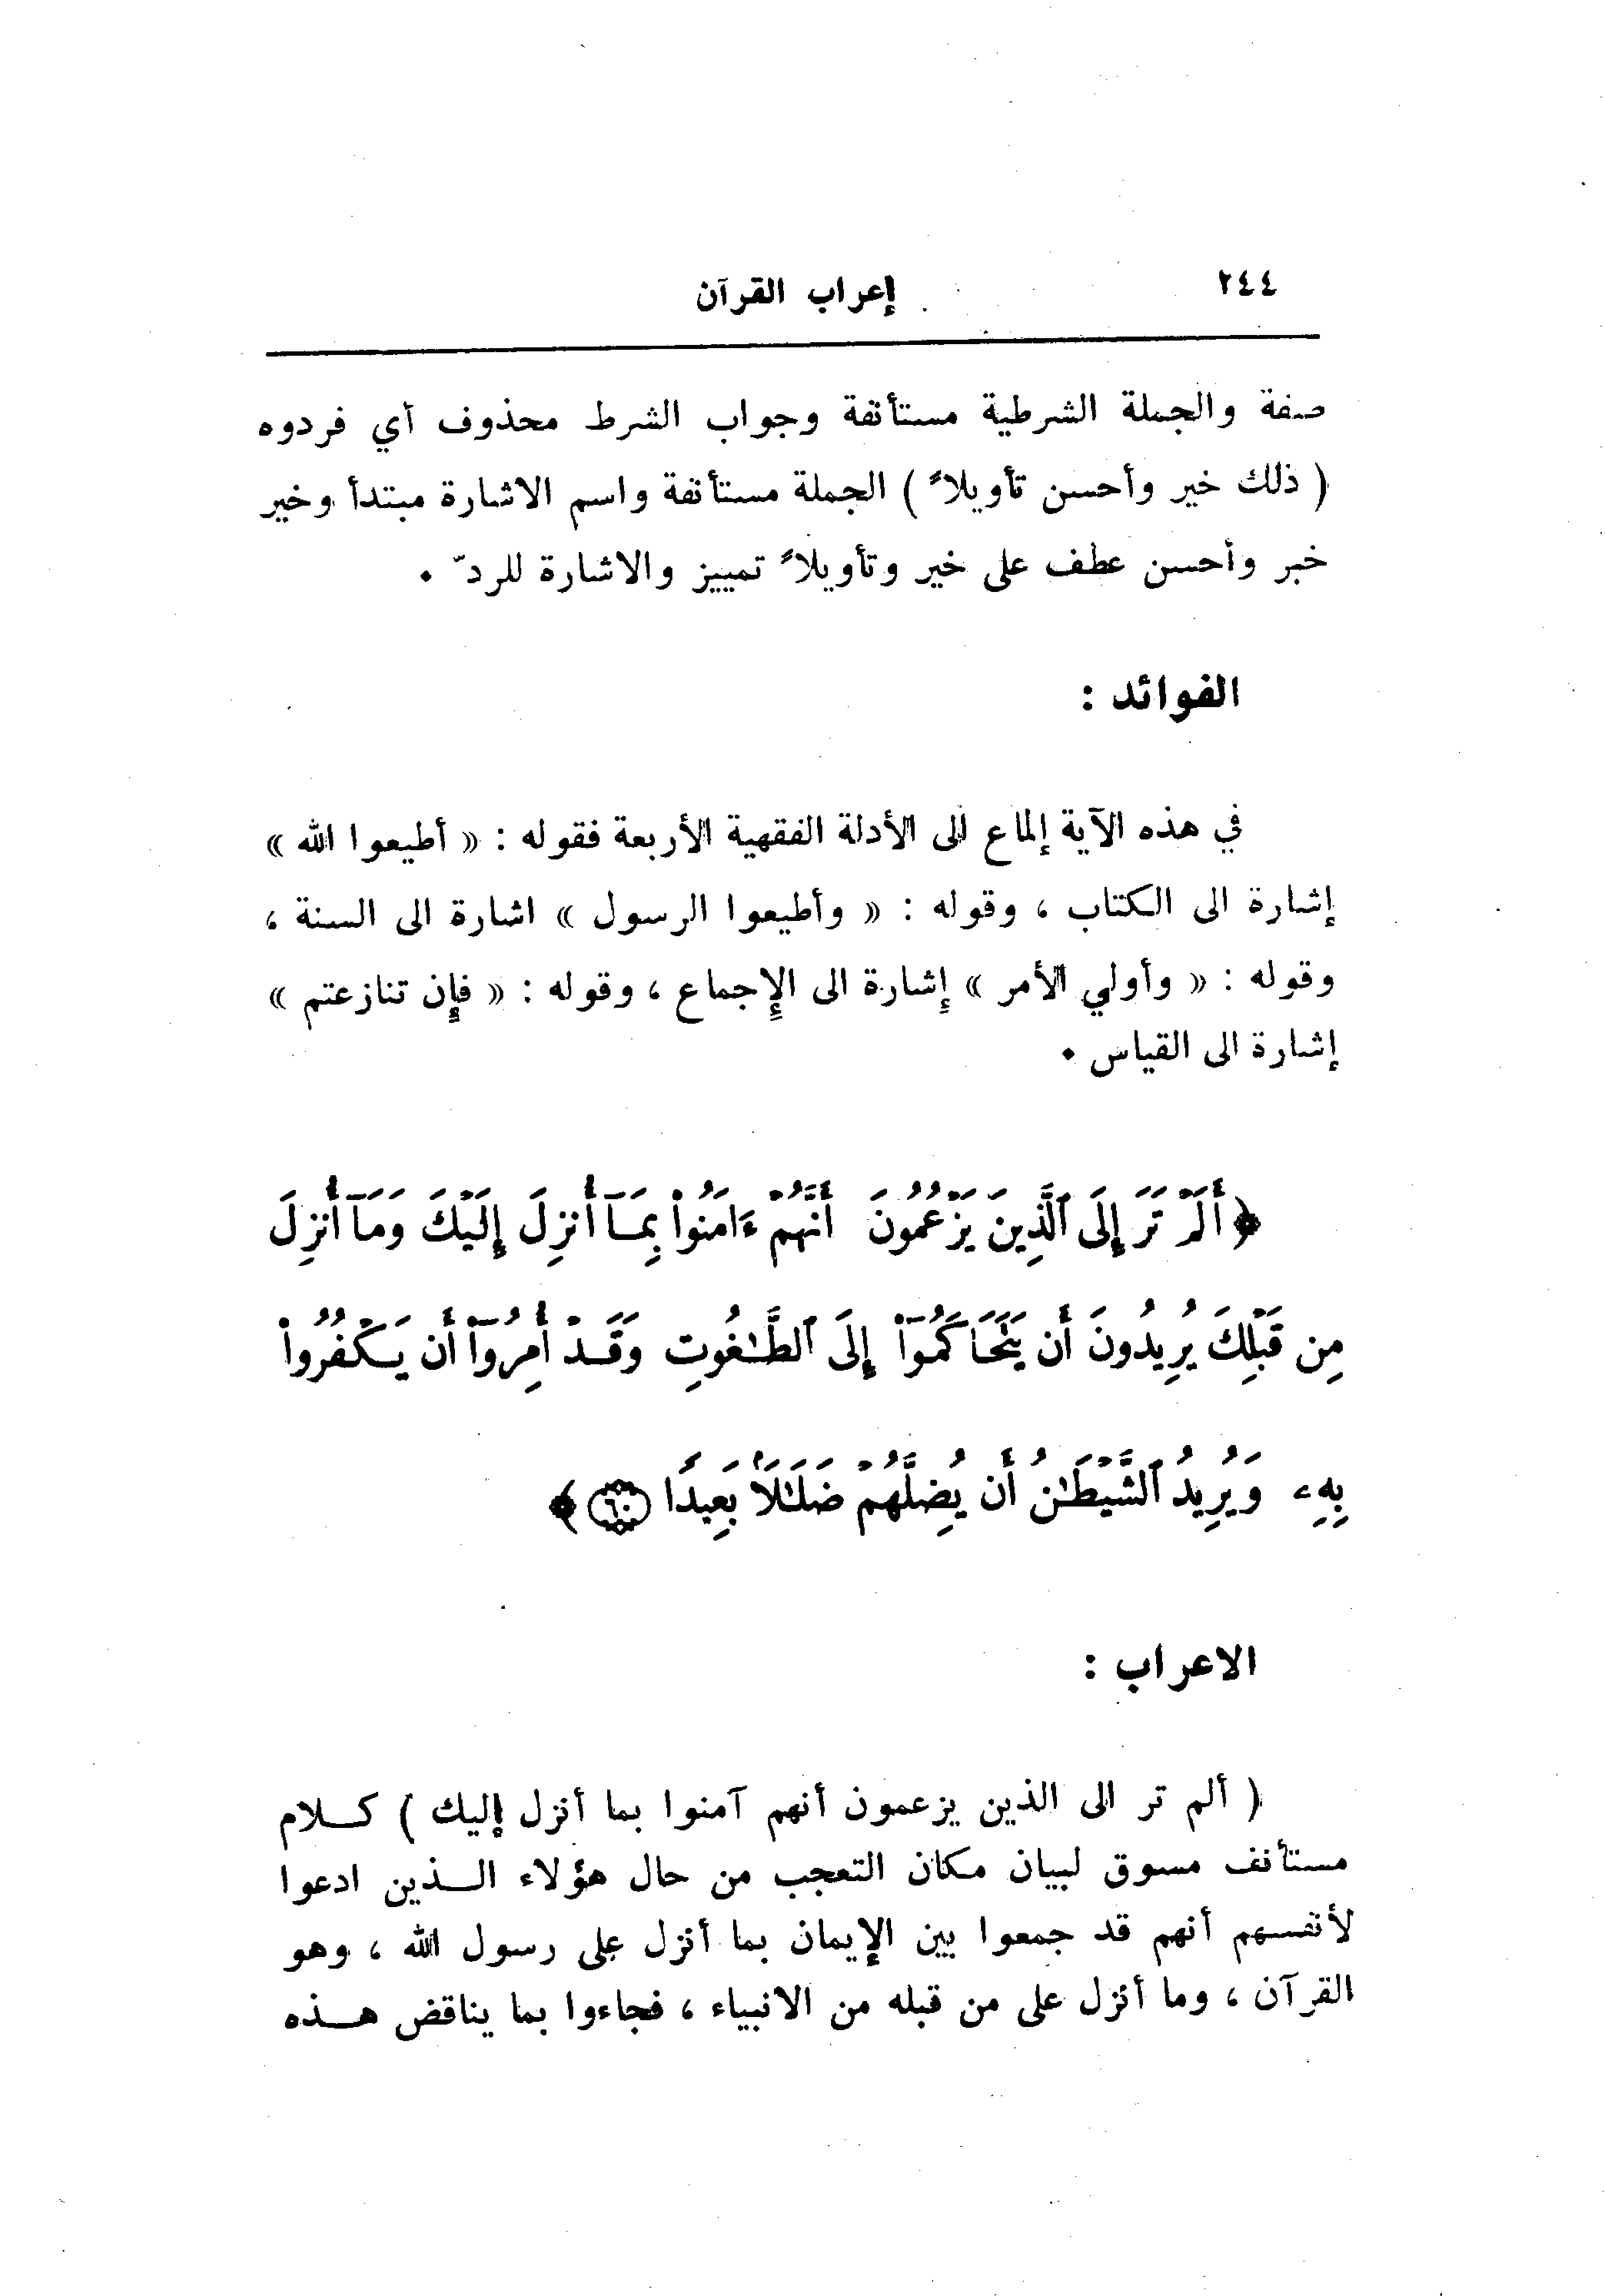 ٢٤٤
إعراب القرآن
صفة والجملة الشرطية مستأنفة وجواب الشرط محذوف أي فردوه
( ذلك خير وأحسن تأويلاً ) الجملة مستأنفة واسم الاشارة مبتدأ وخير
خبر وأحسن عطف على خير وتأويلاً تمييز والاشارة للردّ .
الفوائد :
في هذه الآية إلماع الى الأدلة الفقهية الأربعة فقوله : « أطيعوا الله »
إشارة الى الكتاب ، وقوله : « وأطيعوا الرسول » اشارة الى السنة ،
وقوله : « وأولي الأمر » إشارة الى الإجماع ، وقوله : « فإن تنازعتم »
إشارة الى القياس .
﴿ أَلَمْ تَرَ إِلَى ٱلَّذِينَ يَزْعُمُونَ أَنَّهُمْ ءَامَنُواْ بِمَآ أُنزِلَ إِلَيْكَ وَمَآ أُنزِلَ
مِن قَبْلِكَ يُرِيدُونَ أَن يَتَحَاكَمُوٓاْ إِلَى ٱلطَّٰغُوتِ وَقَدْ أُمِرُوٓاْ أَن يَكْفُرُواْ
بِهِۦ وَيُرِيدُ ٱلشَّيْطَٰنُ أَن يُضِلَّهُمْ ضَلَٰلَاۢ بَعِيدًا ٦٠ ﴾
الاعراب :
( ألم تر الى الذين يزعمون أنهم آمنوا بما أنزل إليك ) كلام
مستأنف مسوق لبيان مكان التعجب من حال هؤلاء الذين ادعوا
لأنفسهم أنهم قد جمعوا بين الإيمان بما أنزل على رسول الله ، وهو
القرآن ، وما أنزل على من قبله من الانبياء ، فجاءوا بما يناقض هذه